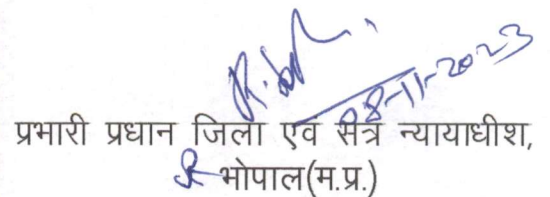 08-11-2023
प्रभारी प्रधान जिला एवं सत्र न्यायाधीश,
भोपाल(म.प्र.)